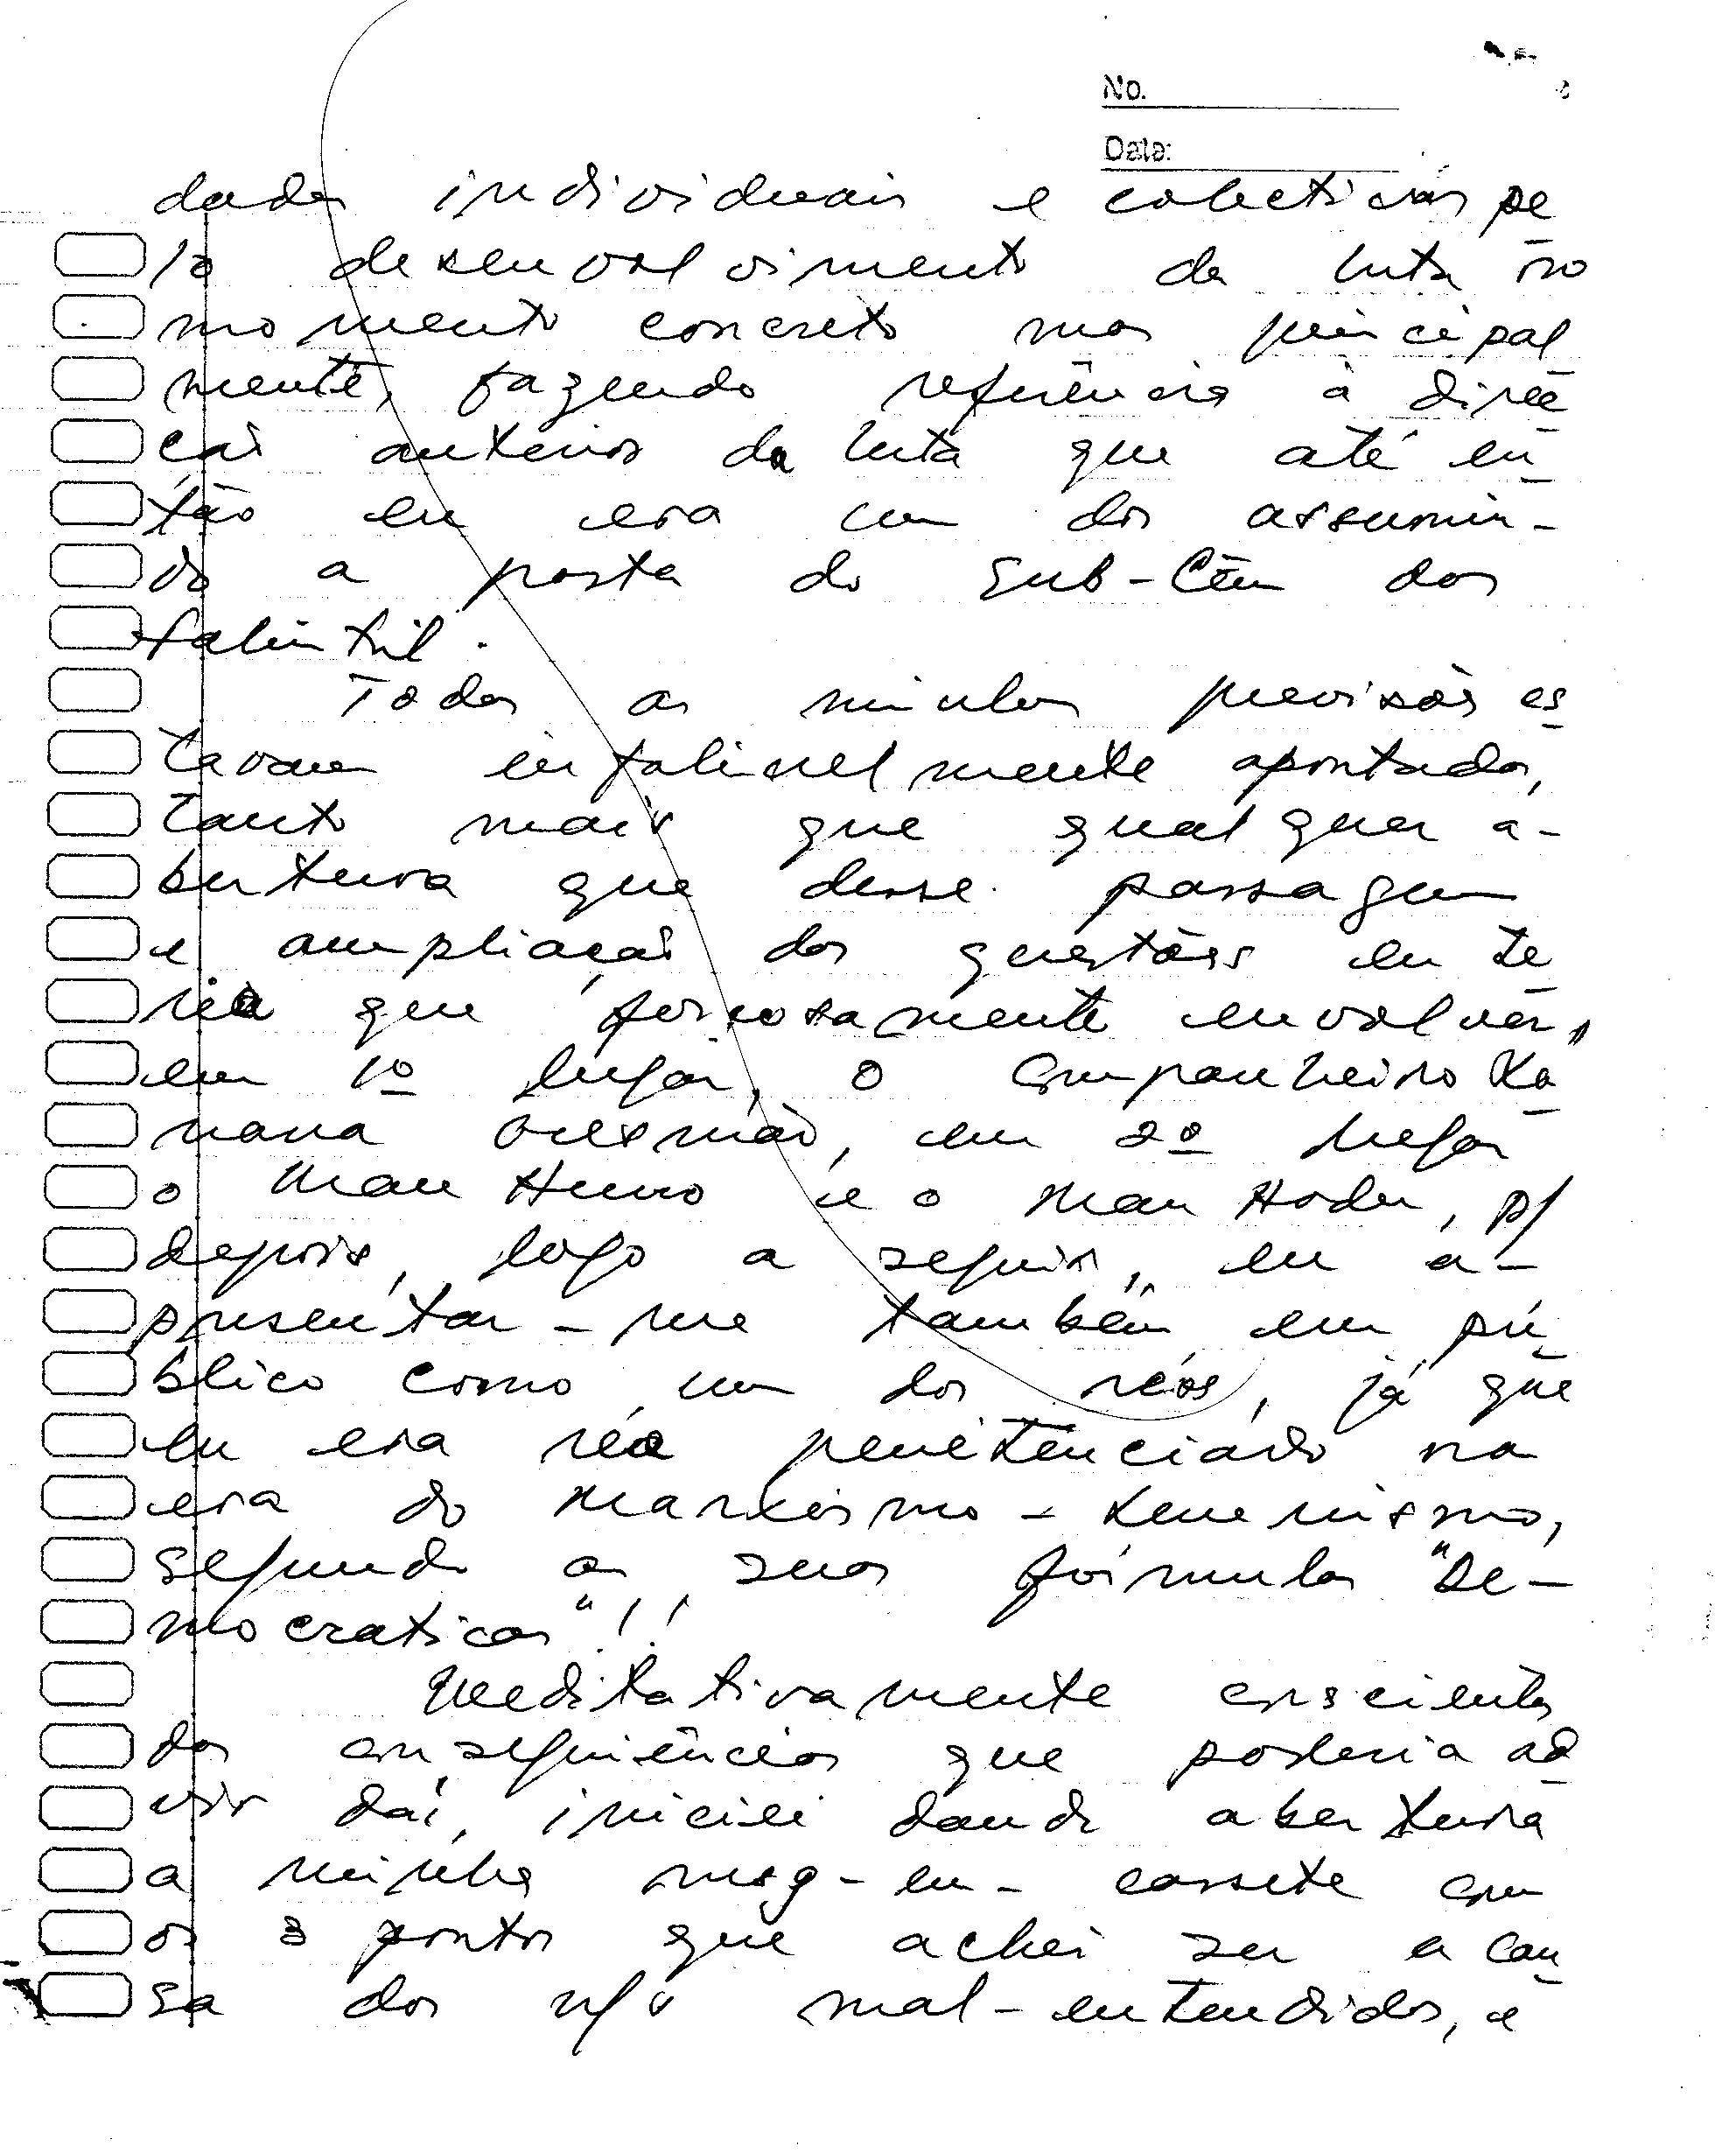 No.
Data:
dades individuais e colectivas pe
lo desenvolvimento da luta no
momento concreto mas principal
mente, fazendo referência à direc
ção anterior da luta que até en
tão eu era um dos assumin-
do a pasta do Sub-Cêm das
falintil.
Todas as minhas previsões es
tavam infalivelmente apontadas,
tanto mais que qualquer a-
bertura que desse passagem
e ampliação das questões eu te
ria que forçosamente envolver,
em 1º lugar, o companheiro Xa
nana Gusmão, em 2º lugar
o Mau Huno e o Mau Hodu, p/
depois, logo a seguir, eu a-
presentar-me também em pú
blico como um dos réos, já que
eu era réo penitenciado na
era do Marxismo-Lenenismo,
segundo as suas fórmulas "De-
mocraticas"!!
Meditativamente consciente
das consequiências que poderia ad
vir daí, iniciei dando abertura
a minha msg-em-cassete com
os 3 pontos que achei ser a cau
sa dos n/s mal-entendidos, e